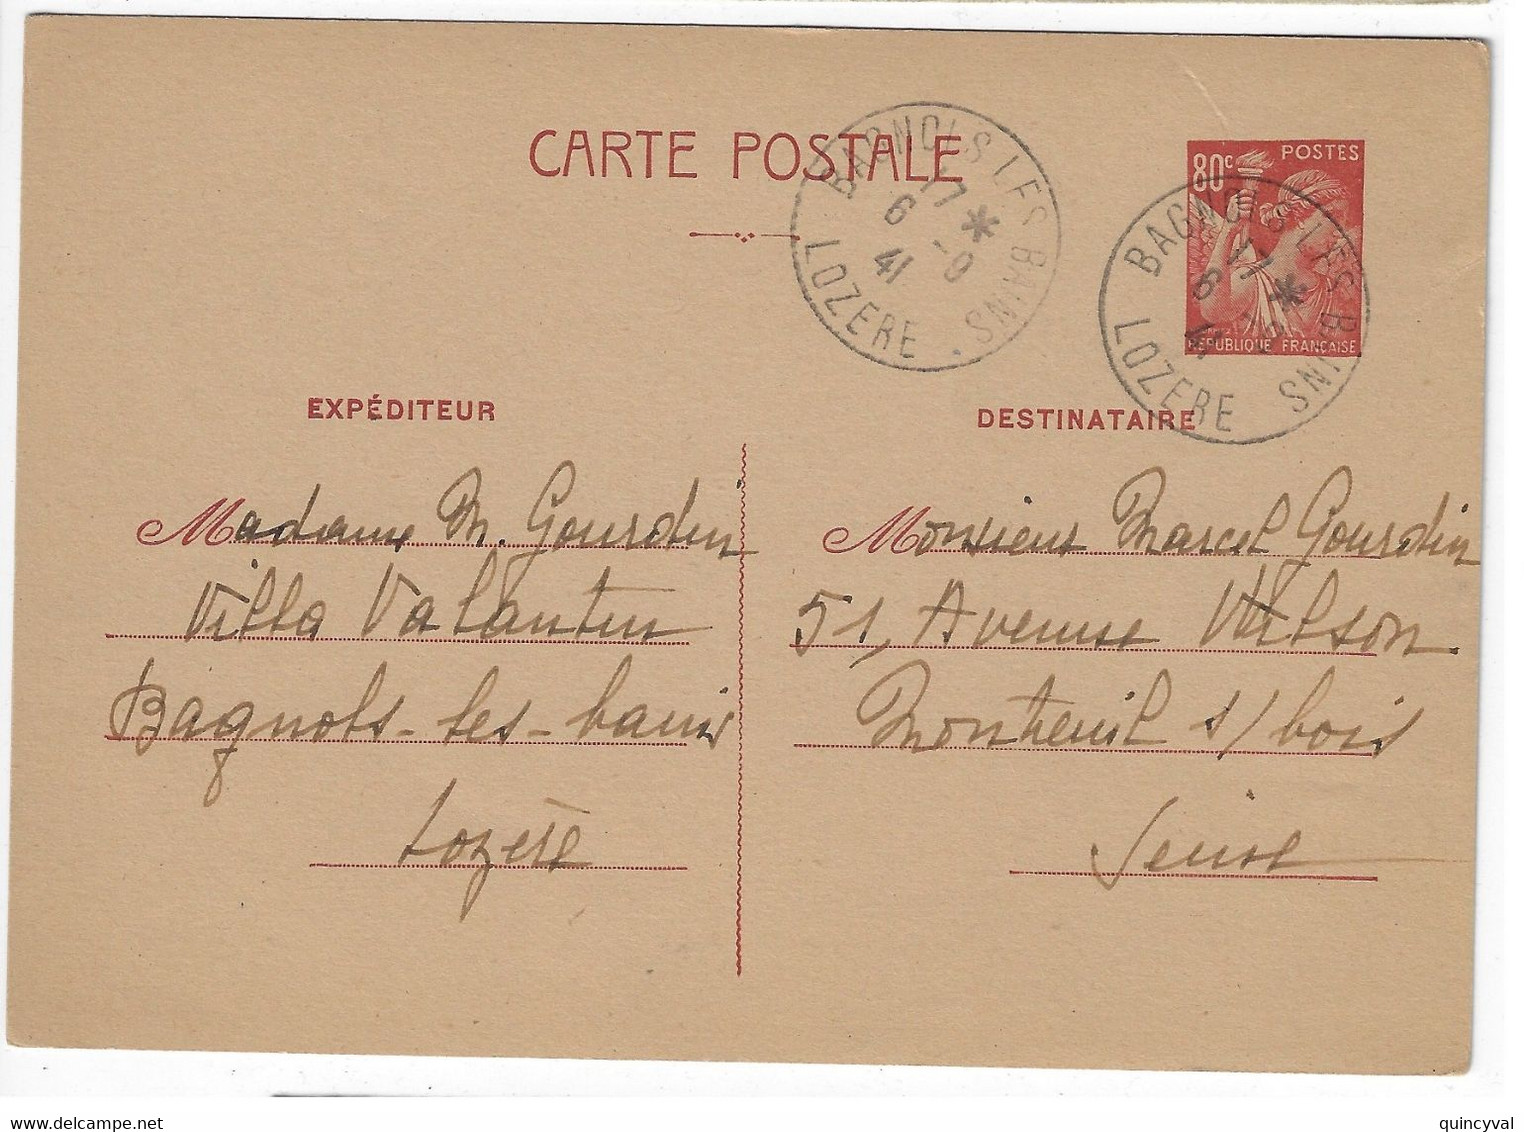 CARTE POSTALE
80c POSTES
RÉPUBLIQUE FRANÇAISE
BAGNOLS LES BAINS
17 *
6 - 9
41
LOZERE
BAGNOLS LES BAINS
17 *
6 - 9
41
LOZERE
EXPÉDITEUR
Madame M. Gourdin
Villa Valantin
Bagnols-les-bains
Lozère
DESTINATAIRE
Monsieur Marcel Gourdin
51, Avenue Wilson
Montreuil s/bois
Seine
www.delcampe.net
quincyval